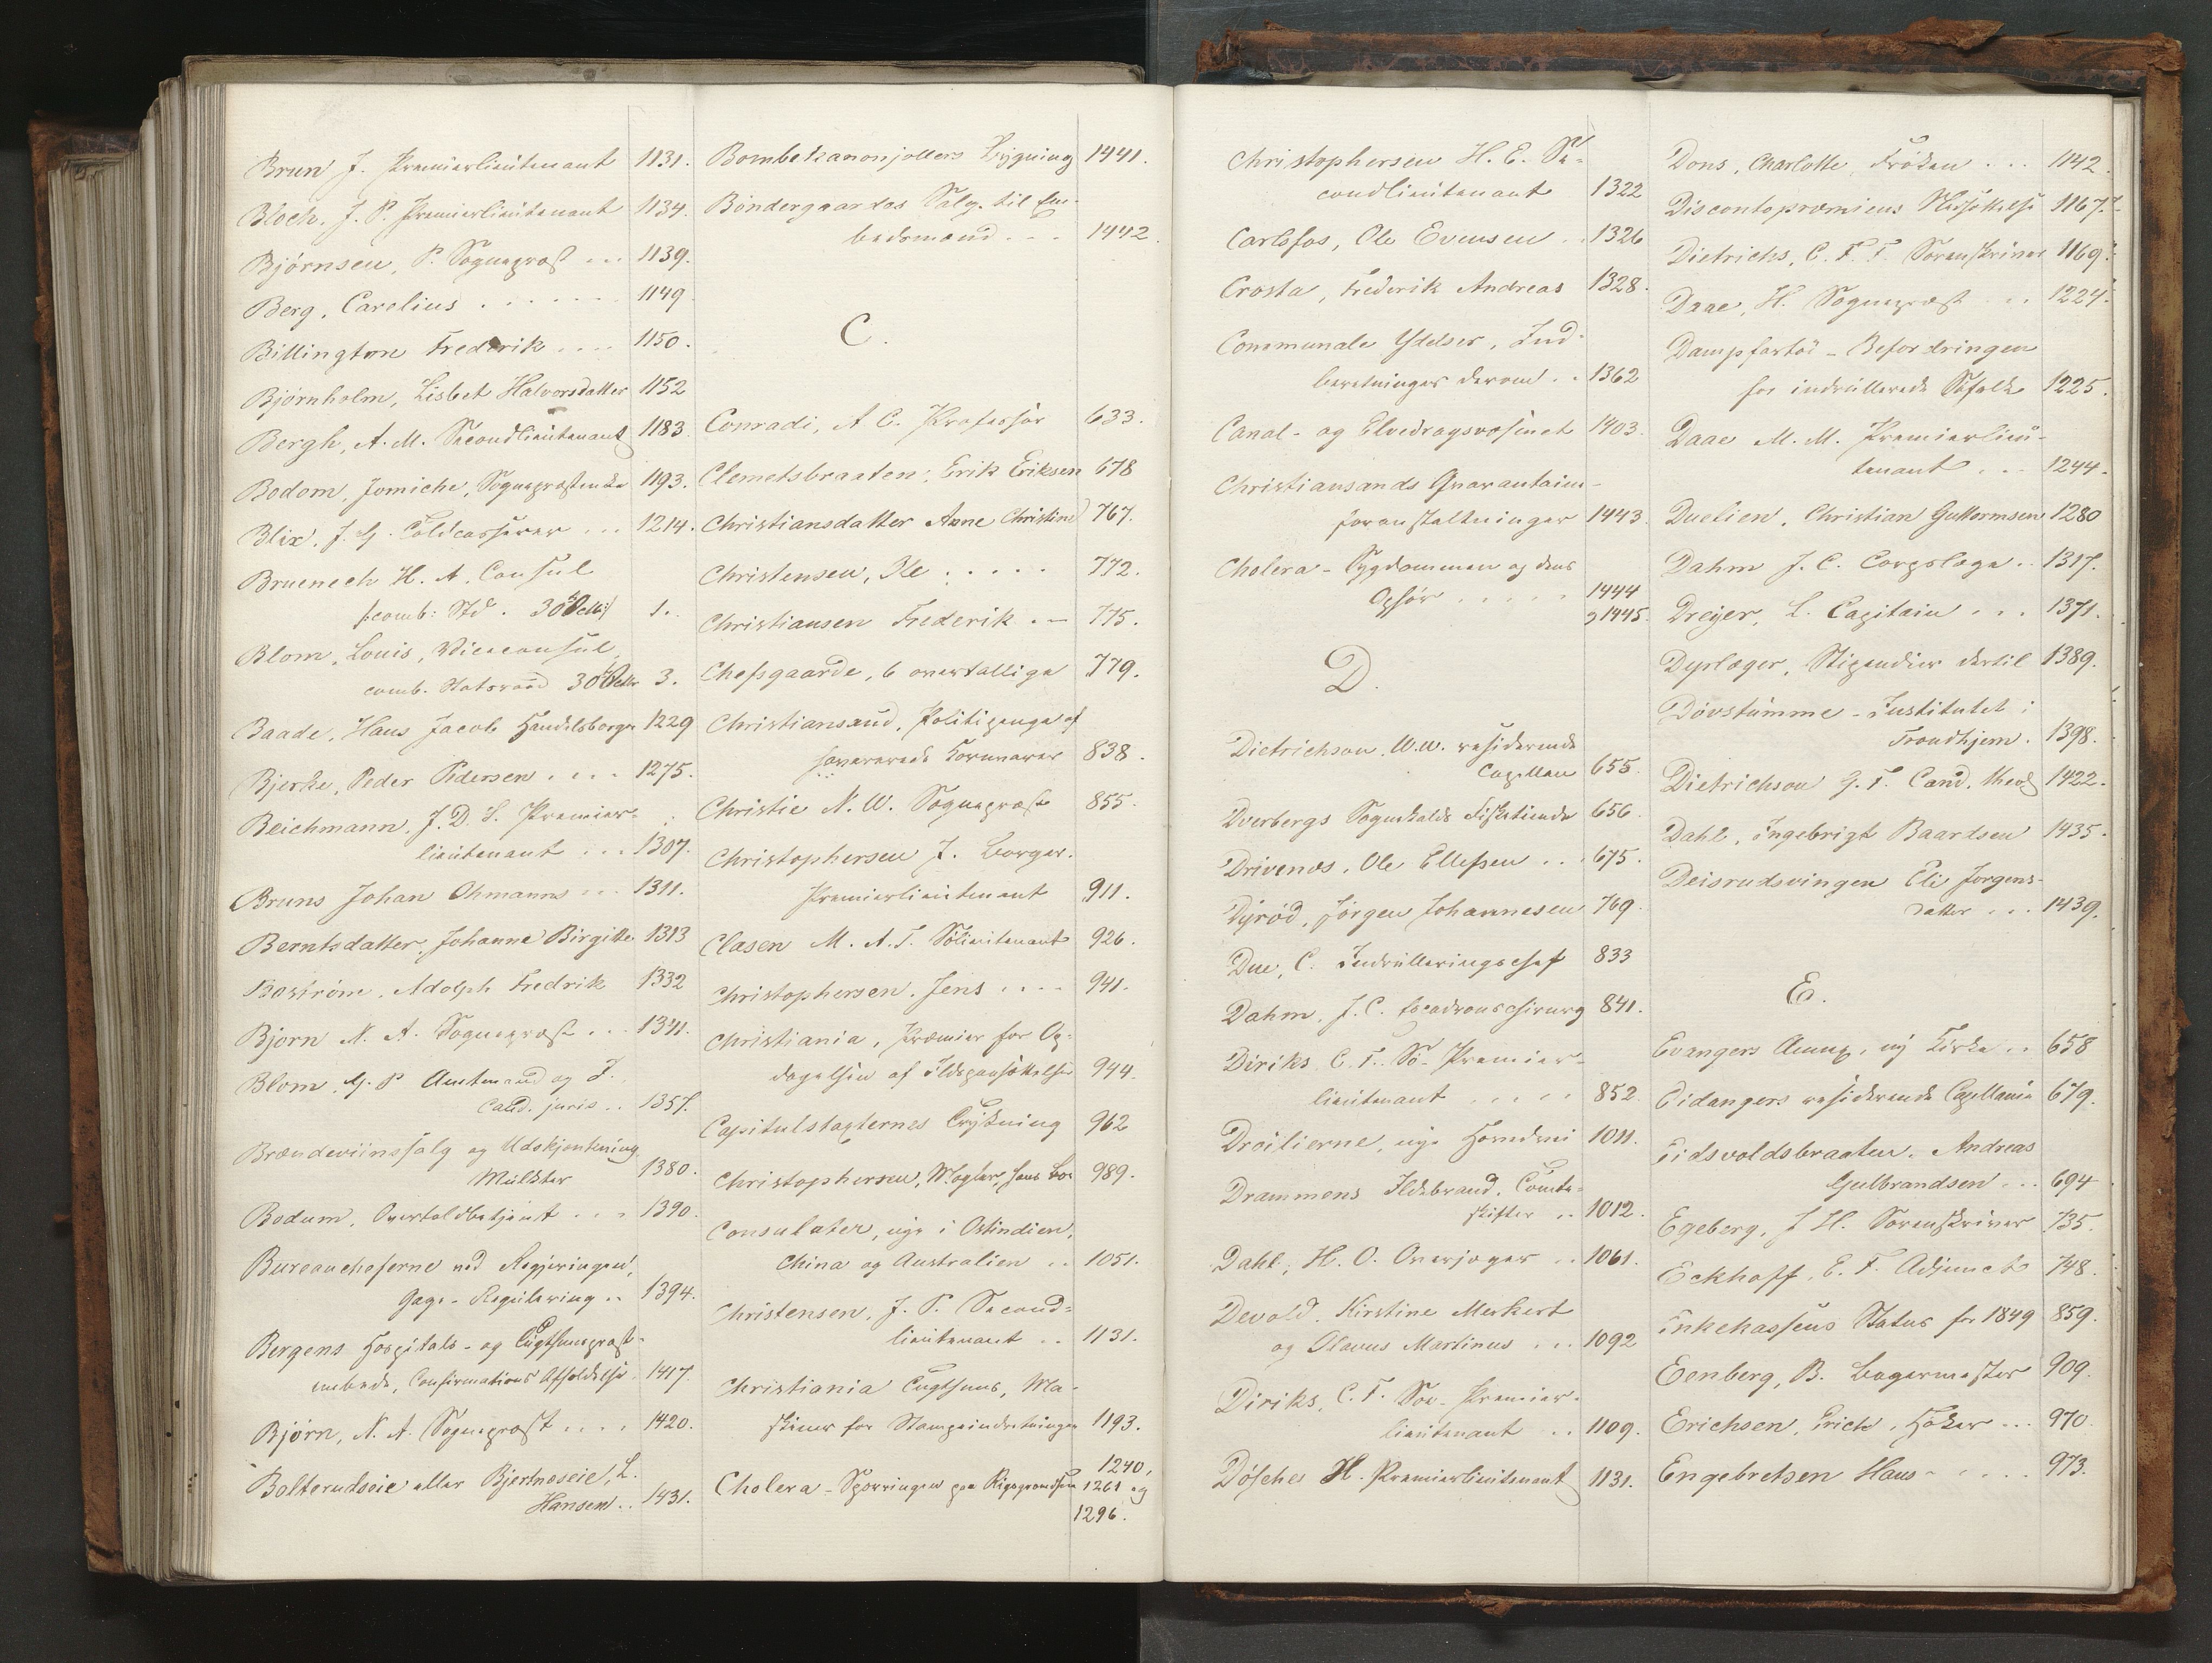 Brun J. Premierlieutenant 1131.
Bloch, J. P. Premierlieutenant 1134.
Bjørnsen, P. Sognepræst ... 1139.
Berg, Carelius ...... 1149
Billington Frederik .... 1150.
Bjørnholm, Lisbet Halvorsdatter 1152
Bergh, A. M. Secondlieutenant 1183
Bodom, Jomiche, Sognepræstenke 1193.
Blix, J. G. Toldcasserer ... 1214.
Bruenech H. A. Consul
comb: Std. 30 1.
Blom, Louis, Viceconsul,
comb. Statsraad 30 3.
Baade, Hans Jacob Handelsborger 1229
Bjerke, Peder Pedersen .... 1275.
Beichmann, J. D. S. Premier-
lieutenant ... 1307.
Bruns Johan Ohmann ... 1311.
Berntsdatter, Johanne Birgitte 1313
Boström, Adolph Fredrik 1332
Bjørn N. A. Sognepræst ... 1341.
Blom, G. P. Amtmand og J.
Cand. juris .. 1357.
Brændeviinssalg og Udskjenkning
Mulkter 1380.
Bodum, Overtoldbetjent ... 1390.
Bureaucheferne ved Regjeringen,
Gage-Regulering .. 1394.
Bergens Hospitals- og Tugthuuspræst-
embede, Confirmations Afholdelse 1417.
Bjørn, N. A. Sognepræst .... 1420.
Bolterudseie eller Bjertnæseie, L.
Hansen .. 1431.
Bombekanonjollers Bygning 1441.
Bøndergaardes Salg til Em-
bedsmænd ... 1442.
C.
Conradi, A C. Professor 633.
Clemetsbraaten, Erik Eriksen 678
Christiansdatter Anne Christine 767.
Christensen, Ole ..... 772.
Christiansen Frederik .. 775.
Chefsgaarde, 6 overtallige 779.
Christiansand, Politipenge af
Kornvarer 838.
Christie N. W. Sognepræst 855.
Christophersen J. Borger-
Premierlieutenant 911.
Clasen M. A. F. Sölieutenant 926.
Christophersen, Jens .... 941.
Christiania, Præmier for Op-
dagelsen af Ildspaasættelser 944.
Capitulstaxternes Trykning 962
Christophersen, Mægler, hans Bo 989.
Consulater, nye i Ostindien,
China og Australien .. 1051.
Christensen, J. P. Second-
lieutenant .. 1131.
Christiania Tugthuus, Ma-
skiner for Stampeindretningen 1193.
1240,
Cholera-Sperringen paa Rigsgrændsen 1261 og
1296.
Christophersen H. E. Se-
condlieutenant 1322
Carlsfos, Ole Evensen .. 1326
Crosta, Frederik Andreas 1328.
Communale Ydelser, Ind-
beretninger derom .. 1362
Canal- og Elvedragsvæsenet 1403.
Christiansands Qvarantaine-
foranstaltninger 1443.
Cholera-Sygdommen og dens
Ophør ..... 1444
og 1445.
D.
Dietrichson, W. W. residerende
Capellan 655.
Dverbergs Sognekalds Fisketiende 656.
Drivenes, Ole Ellefsen ... 675.
Dyrød, Jörgen Johannesen 769.
Due, C. Indrulleringschef 833
Dahm, J. C. Escadronschirurg 841.
Diriks C. F. Sö-Premier-
lieutenant ..... 852.
Droilierne, nye Horndrei 1011.
Drammens Ildebrand, Tomte-
skifter .. 1012.
Dahl, H. O. Overjæger .. 1061.
Devold, Kirstine Merkert
og Olavus Martinus ... 1092
Diriks, C. F. Söe-Premier-
lieutenant .. 1109.
Døscher H. Premierlieutenant 1131.
Dons, Charlotte, Frøken ... 1142.
Discontopræmiens Nedsættelse 1167.
Dietrichs, C. F. F. Sorenskriver 1169.
Daae, H. Sognepræst ... 1224.
Dampfartøi-Befordringen
for indrullerede Søfolk 1225.
Daae M. M. Premierlieu-
tenant ... 1244.
Duelien, Christian Guttormsen 1280
Dahm J. C. Corpslæge .. 1317.
Dreyer, L. Capitain ... 1371.
Dyrlæger, Stipendier dertil 1389.
Døvstumme-Institutet i
Trondhjem. 1398.
Dietrichson G. F. Cand. theol. 1422.
Dahl, Ingebrigt Baardsen 1435.
Deisrudsvingen Eli Jørgens-
datter ... 1439.
E.
Evangers Annex, ny Kirke .. 658
Eidangers residerende Capellanie 679.
Eidsvoldsbraaten, Andreas
Gulbrandsen ... 694
Egeberg, J H. Sorenskriver 735.
Eckhoff, E. F. Adjunct 748.
Enkekassens Status for 1849 859.
Eenberg, B. Bagermester 909.
Erichsen, Erich, Høker ... 970.
Engebretsen Hans ..... 973.